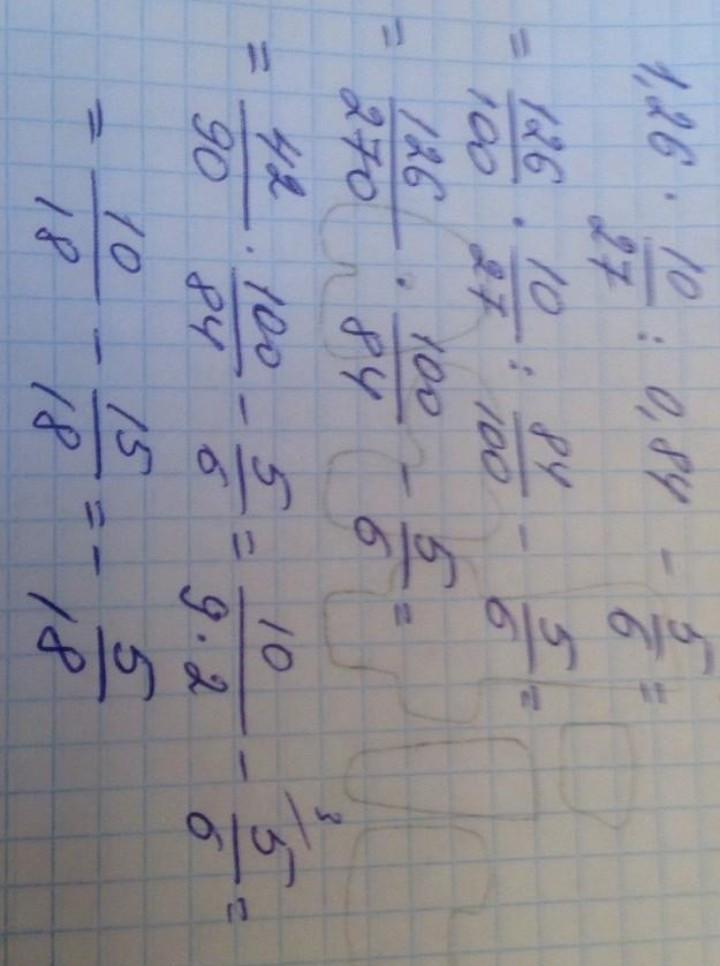 1,26 · 10/27 : 0,84 - 5/6 =
= 126/100 · 10/27 : 84/100 - 5/6 =
= 126/270 · 100/84 - 5/6 =
= 42/90 · 100/84 - 5/6 = 10/9·2 - 5/6 3/ =
= 10/18 - 15/18 = - 5/18